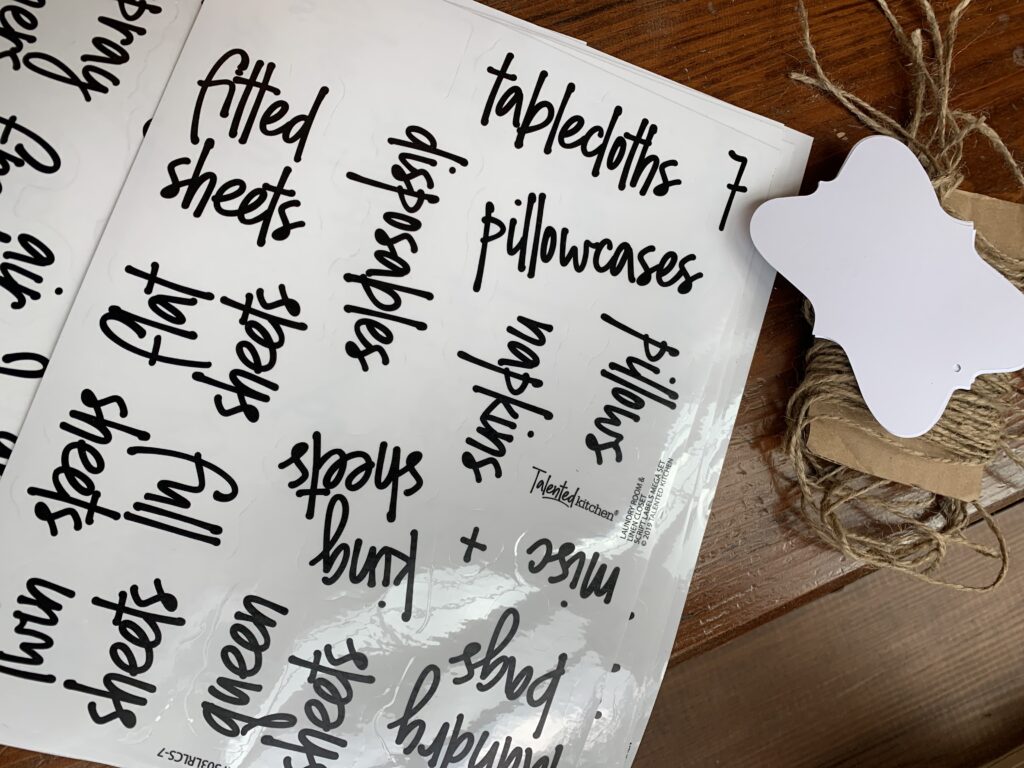 fitted
sheets
tablecloths
7
disposables
pillowcases
flat
sheets
napkins
pillows
full
sheets
king
sheets
Talented Kitchen®
LAUNDRY ROOM &
LINEN CLOSET
SCRIPT LABELS MEGA SET
© 2019 TALENTED KITCHEN
+
misc
sheets
queen
sheets
laundry
bags
503LRLCS-7
air